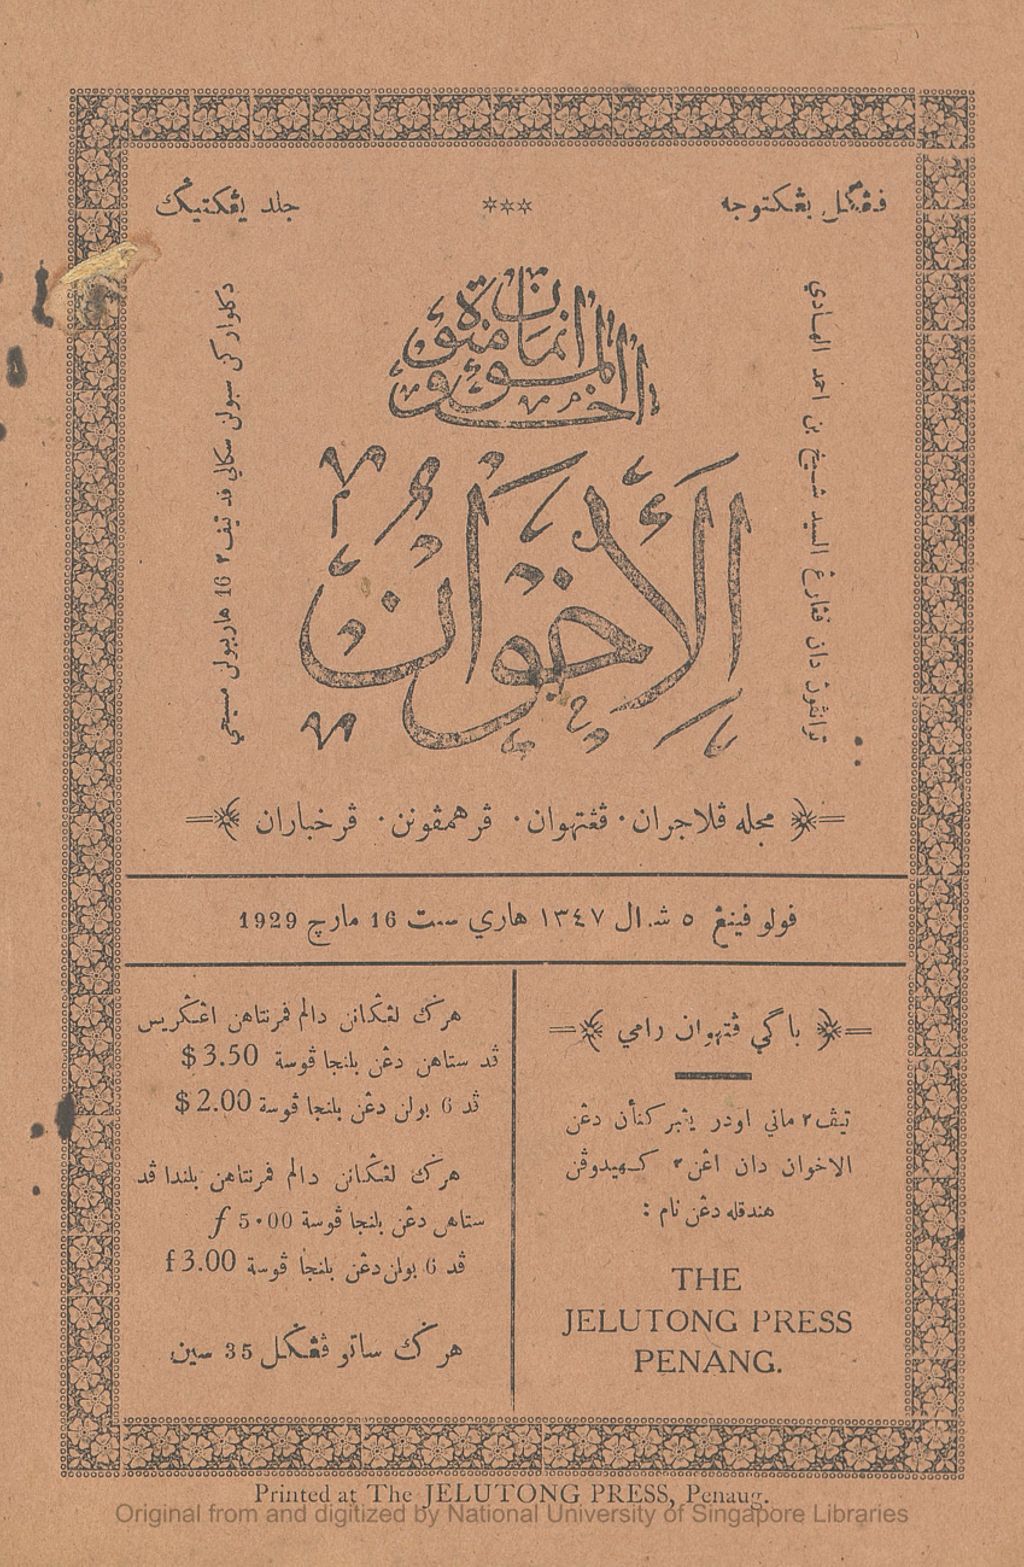 فڠڬل يڠكتوجه
***
جلد يڠكتيڬ
انما المؤمنون اخوة
الإخوان
توانڤون دان ڤڠارڠ السيد شيخ بن احمد الهادي
دكلواركن سبولن سكالي ڤد تيڤ٢ 16 هاريبولن مسيحي
مجله ڤلاجران ۰ ڤڠتهوان ۰ ڤرهمڤونن ۰ ڤرخباران
ڤولو ڤينڠ ٥ شوال ١٣٤٧ هاري سبت 16 مارچ 1929
باڬي ڤڠتهوان رامي
تيڤ٢ ماني اودر يڠبركنأن دڠن
الاخوان دان اڠن٢ كهيدوڤن
هندقله دڠن نام :
THE
JELUTONG PRESS
PENANG.
هرڬ لڠڬانن دالم ڤمرنتاهن اڠڬريس
ڤد ستاهن دڠن بلنجا ڤوسة $3.50
ڤد 6 بولن دڠن بلنجا ڤوسة $2.00
هرڬ لڠڬانن دالم ڤمرنتاهن بلندا ڤد
ستاهن دڠن بلنجا ڤوسة f 5·00
ڤد 6 بولن دڠن بلنجا ڤوسة f3.00
هرڬ ساتو ڤڠڬل 35 سين
Printed at The JELUTONG PRESS, Penang.
Original from and digitized by National University of Singapore Libraries